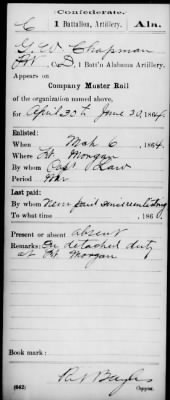 Confederate.
C 1 Battalion, Artillery. Ala.
G. W. Chapman
Pvt, Co. D, 1 Batt'n Alabama Artillery.
Appears on
Company Muster Roll
of the organization named above,
for April 30th June 30, 1864.
Enlisted:
When Mch 6, 1864.
Where Ft. Morgan
By whom Capt Law
Period War
Last paid:
By whom Never paid since enlisting
To what time , 186
Present or absent absent
Remarks: On detached duty
at Ft. Morgan
Book mark:
(642) Copyist.